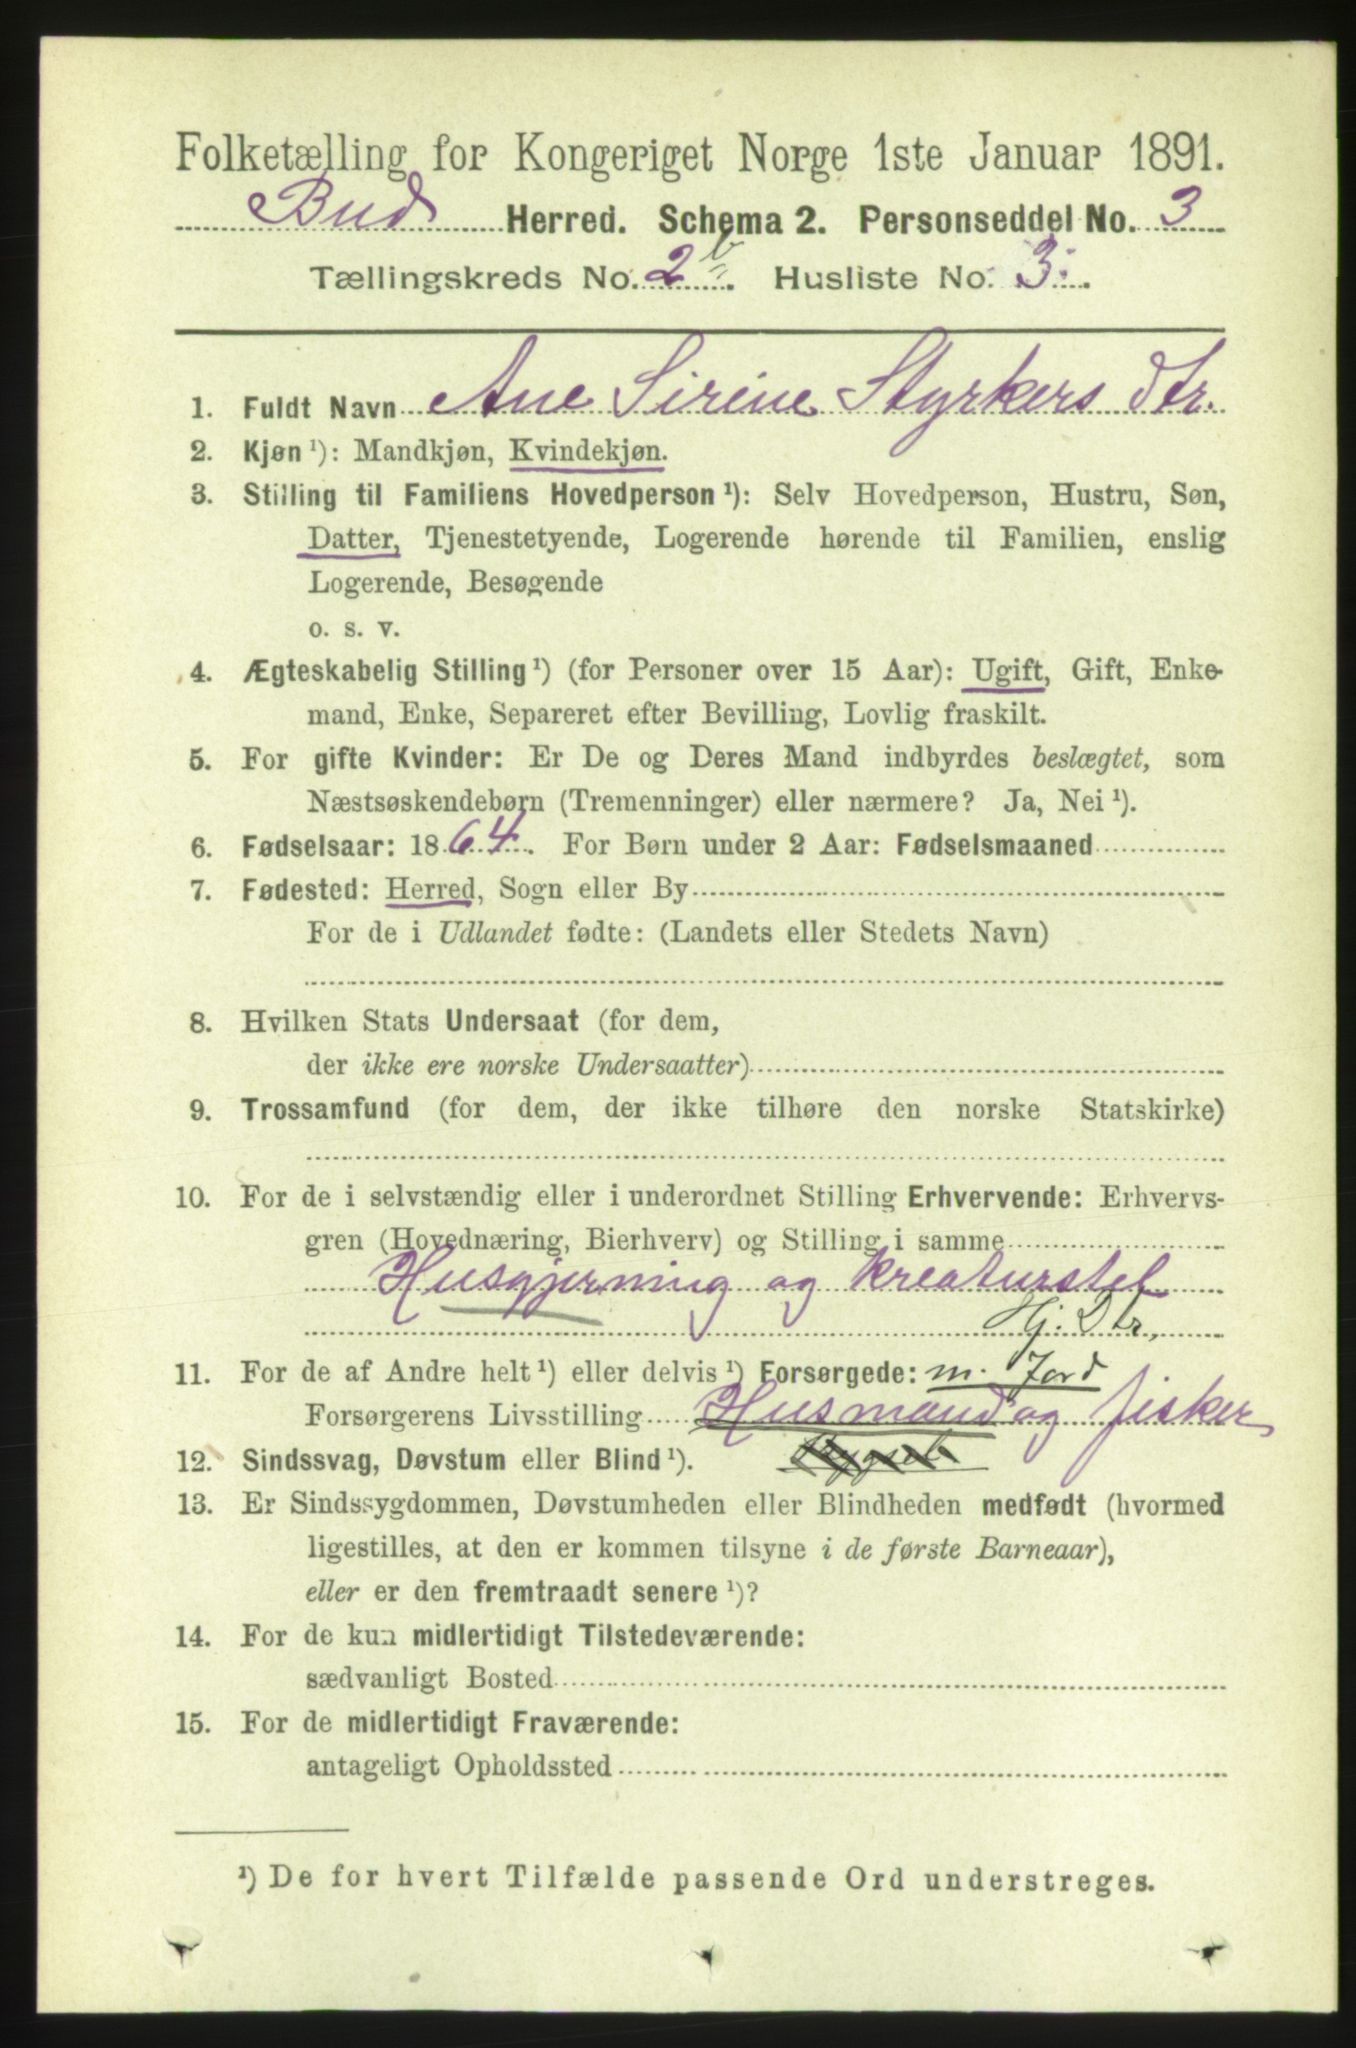 Folketælling for Kongeriget Norge 1ste Januar 1891.
Bud Herred. Schema 2. Personseddel No. 3
Tællingskreds No. 2 b. Husliste No. 3.
1. Fuldt Navn Ane Sirine Styrkersdtr.
2. Kjøn ¹): Mandkjøn, Kvindekjøn.
3. Stilling til Familiens Hovedperson ¹): Selv Hovedperson, Hustru, Søn,
Datter, Tjenestetyende, Logerende hørende til Familien, enslig
Logerende, Besøgende
o. s. v.
4. Ægteskabelig Stilling ¹) (for Personer over 15 Aar): Ugift, Gift, Enke-
mand, Enke, Separeret efter Bevilling, Lovlig fraskilt.
5. For gifte Kvinder: Er De og Deres Mand indbyrdes beslægtet, som
Næstsøskendebørn (Tremenninger) eller nærmere? Ja, Nei ¹).
6. Fødselsaar: 1864. For Børn under 2 Aar: Fødselsmaaned
7. Fødested: Herred, Sogn eller By
For de i Udlandet fødte: (Landets eller Stedets Navn)
8. Hvilken Stats Undersaat (for dem,
der ikke ere norske Undersaatter)
9. Trossamfund (for dem, der ikke tilhøre den norske Statskirke)
10. For de i selvstændig eller i underordnet Stilling Erhvervende: Erhvervs-
gren (Hovednæring, Bierhverv) og Stilling i samme
Husgjerning og kreaturstel
Hj. Dtr,
11. For de af Andre helt ¹) eller delvis ¹) Forsørgede: m. Jord
Forsørgerens Livsstilling Husmand og fisker
12. Sindssvag, Døvstum eller Blind ¹).
13. Er Sindssygdommen, Døvstumheden eller Blindheden medfødt (hvormed
ligestilles, at den er kommen tilsyne i de første Barneaar),
eller er den fremtraadt senere ¹)?
14. For de kun midlertidigt Tilstedeværende:
sædvanligt Bosted
15. For de midlertidigt Fraværende:
antageligt Opholdssted
¹) De for hvert Tilfælde passende Ord understreges.